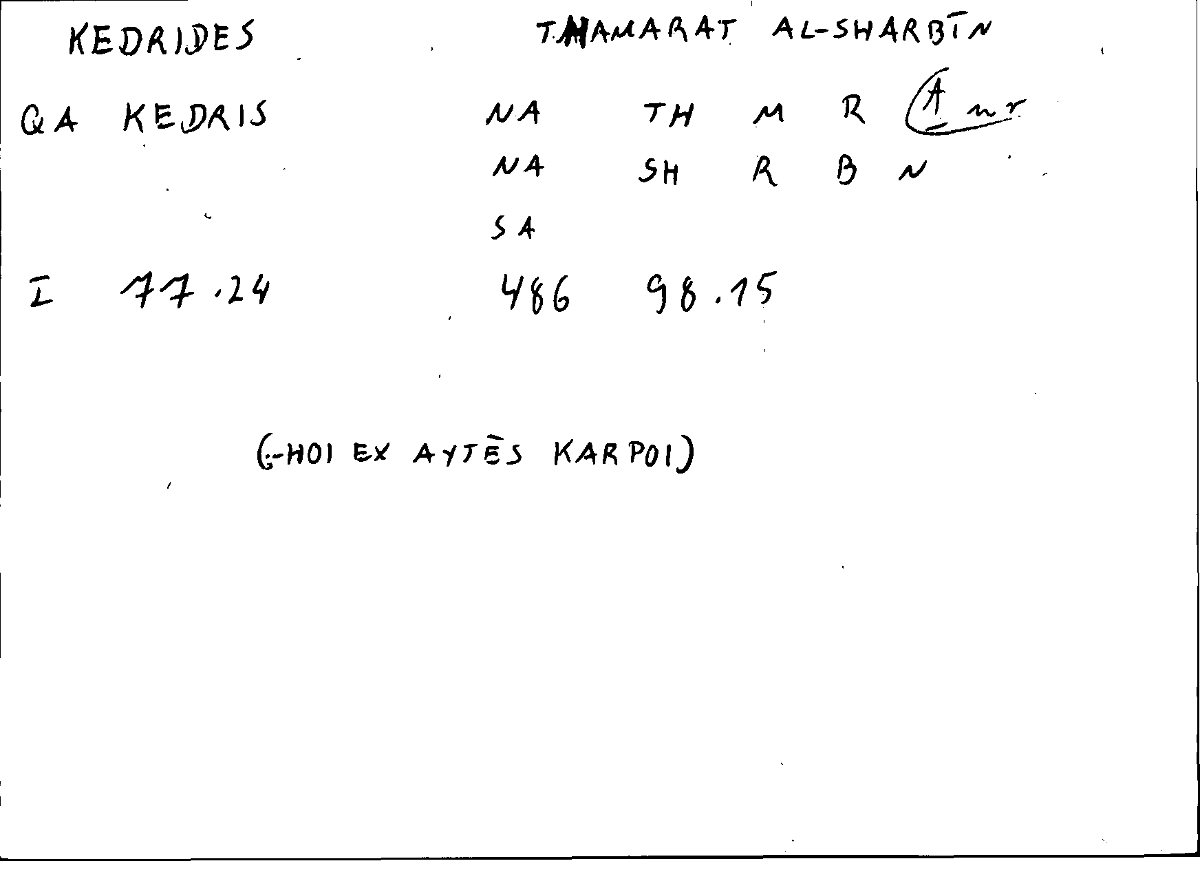 KEDRIDES THAMARAT AL-SHARBĪN
QA KEDRIS NA TH M R
NA SH R B N
SA
I 77.24 486 98.15
(:-HOI EX AYTĒS KARPOI)